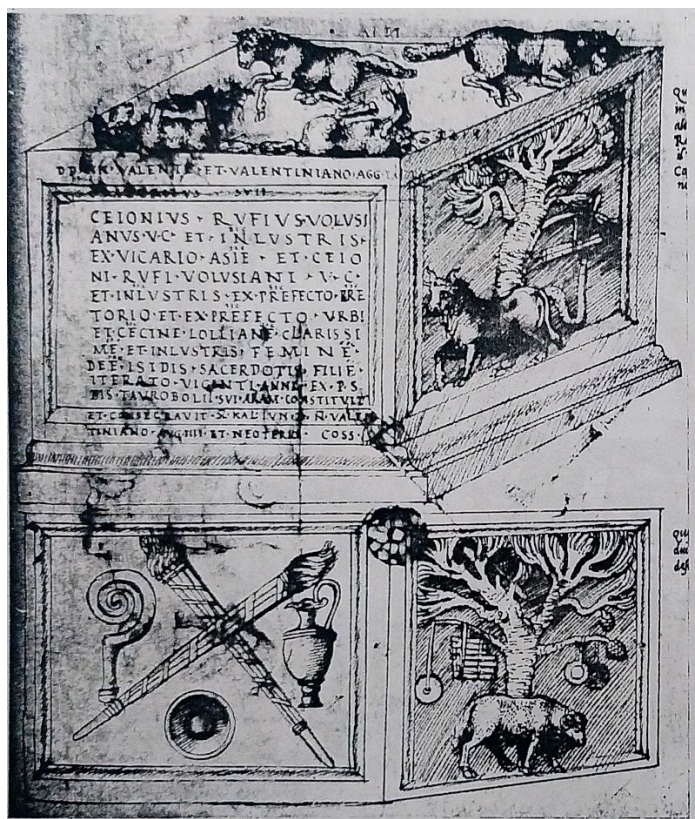 D D N N VALENTE · ET · VALENTINIANO · AGG
CEIONIVS · RVFIVS · VOLVSI
ANVS · V · C · ET · INLVSTRIS ·
EX · VICARIO · ASIE · ET · CEIO
NI · RVFI · VOLVSIANI · V · C ·
ET · INLVSTRIS · EX · PREFECTO · PRE
TORIO · ET · EX · PREFECTO · VRBI
ET · CECINE · LOLLIANE · CLARISSI
ME · ET · INLVSTRIS · FEMINE ·
DEE · ISIDIS · SACERDOTIS · FILIE ·
ITERATO · VIGINTI · ANNIS · EX · P · S ·
TAVROBOLII · SVI · ARAM · CONSTITVIT
ET · CONSECRAVIT · X · KAL · IVN · D · N · VALEN
TINIANO · AVG · IIII · ET · NEOTERIO · COSS ·